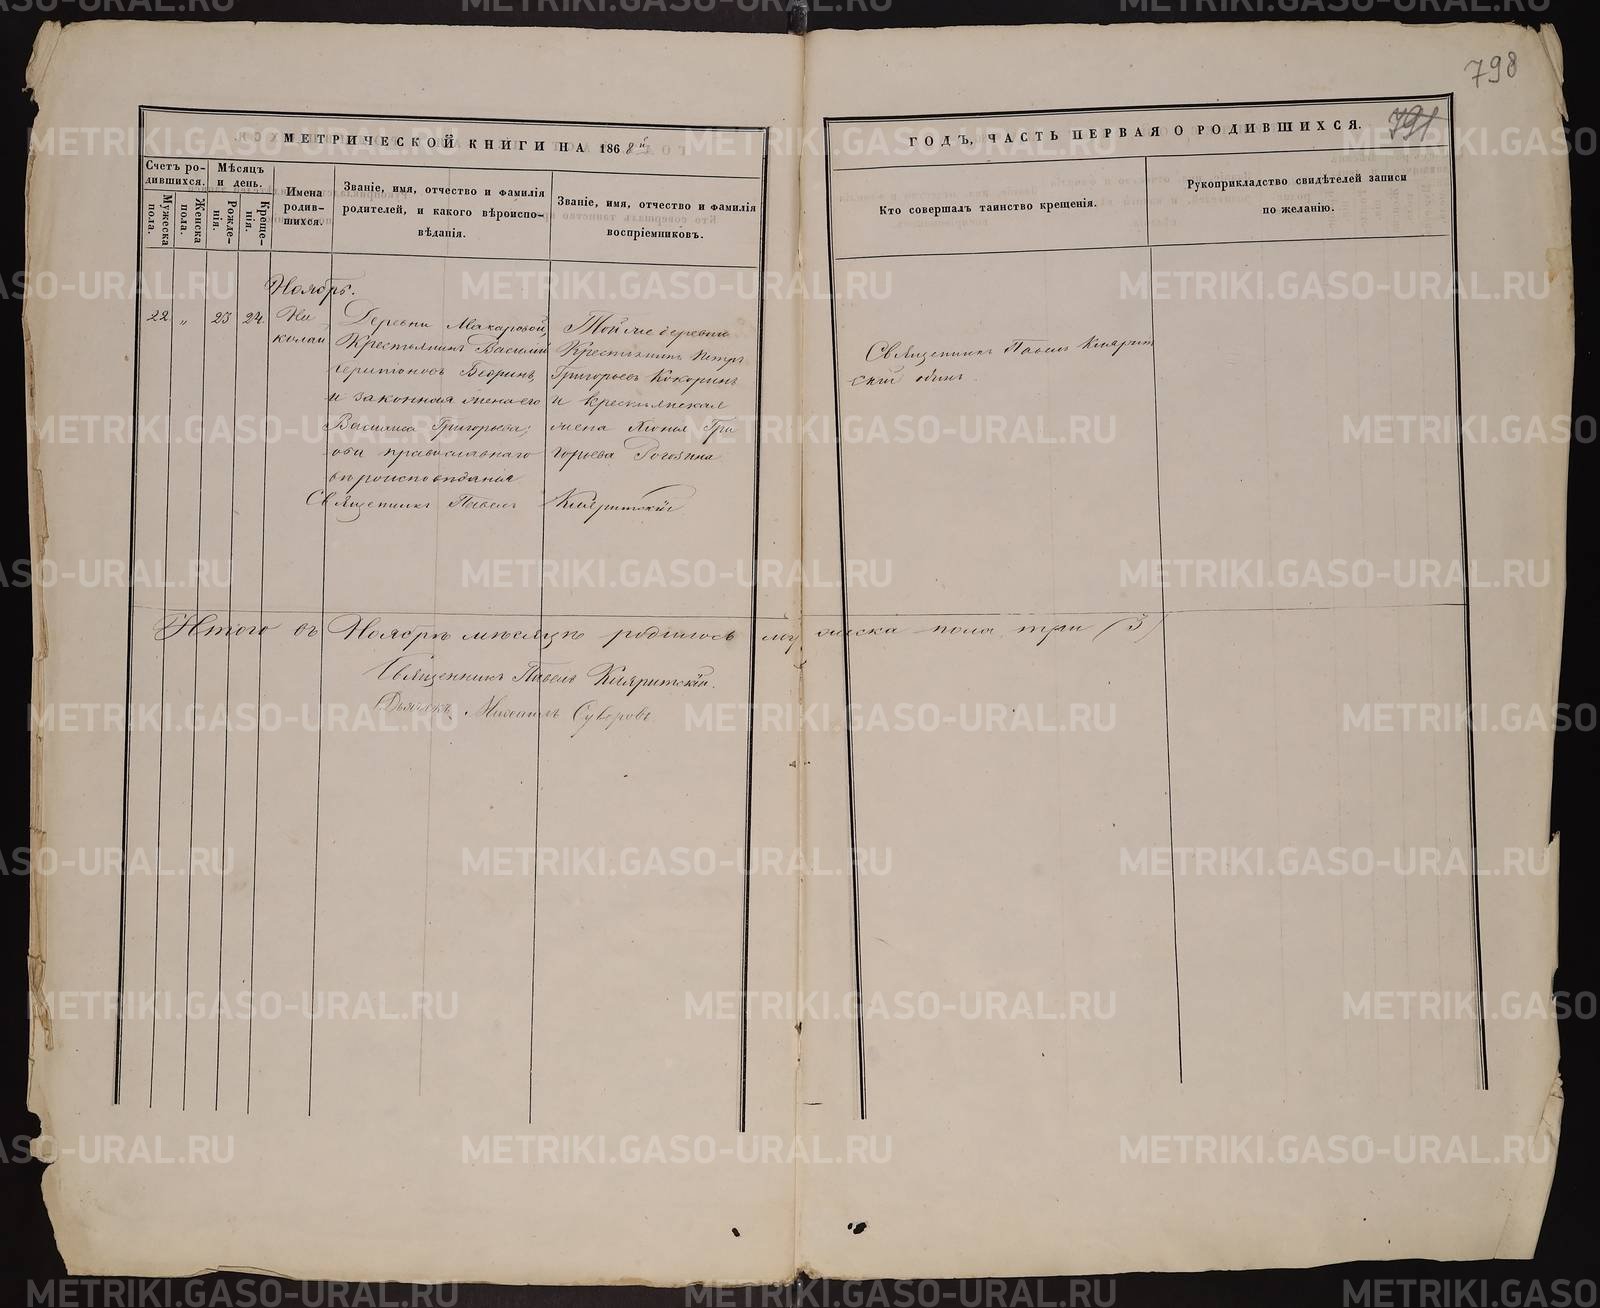 798
МЕТРИЧЕСКОЙ КНИГИ НА 1868й
ГОДЪ, ЧАСТЬ ПЕРВАЯ О РОДИВШИХСЯ.
791
Счетъ ро-
дившихся.
Мужеска пола.
Женска пола.
Мѣсяцъ
и день.
Рожде-
нія.
Креще-
нія.
Имена
родив-
шихся.
Званіе, имя, отчество и фамилія
родителей, и какого вѣроиспо-
вѣданія.
Званіе, имя, отчество и фамилія
воспріемниковъ.
Кто совершалъ таинство крещенія.
Рукоприкладство свидѣтелей записи
по желанію.
Ноябрь.
22 „ 23 24
Ни
колай
Деревни Макаровой,
Крестьянинъ Василій
Харитоновъ
и законная жена его
Василиса Григорьева;
оба православнаго
вѣроисповѣданія
Той же деревни
Крестьянинъ Петръ
Григорьевъ Кокоринъ
и крестьянская
жена Гри
горьева Рогозина
Священникъ Павелъ
Священникъ Павелъ
Итого въ Ноябрѣ мѣсяцѣ родилось мужеска пола три (3)
Священникъ Павелъ
Дьячекъ Михаилъ Суворовъ
METRIKI.GASO-URAL.RU